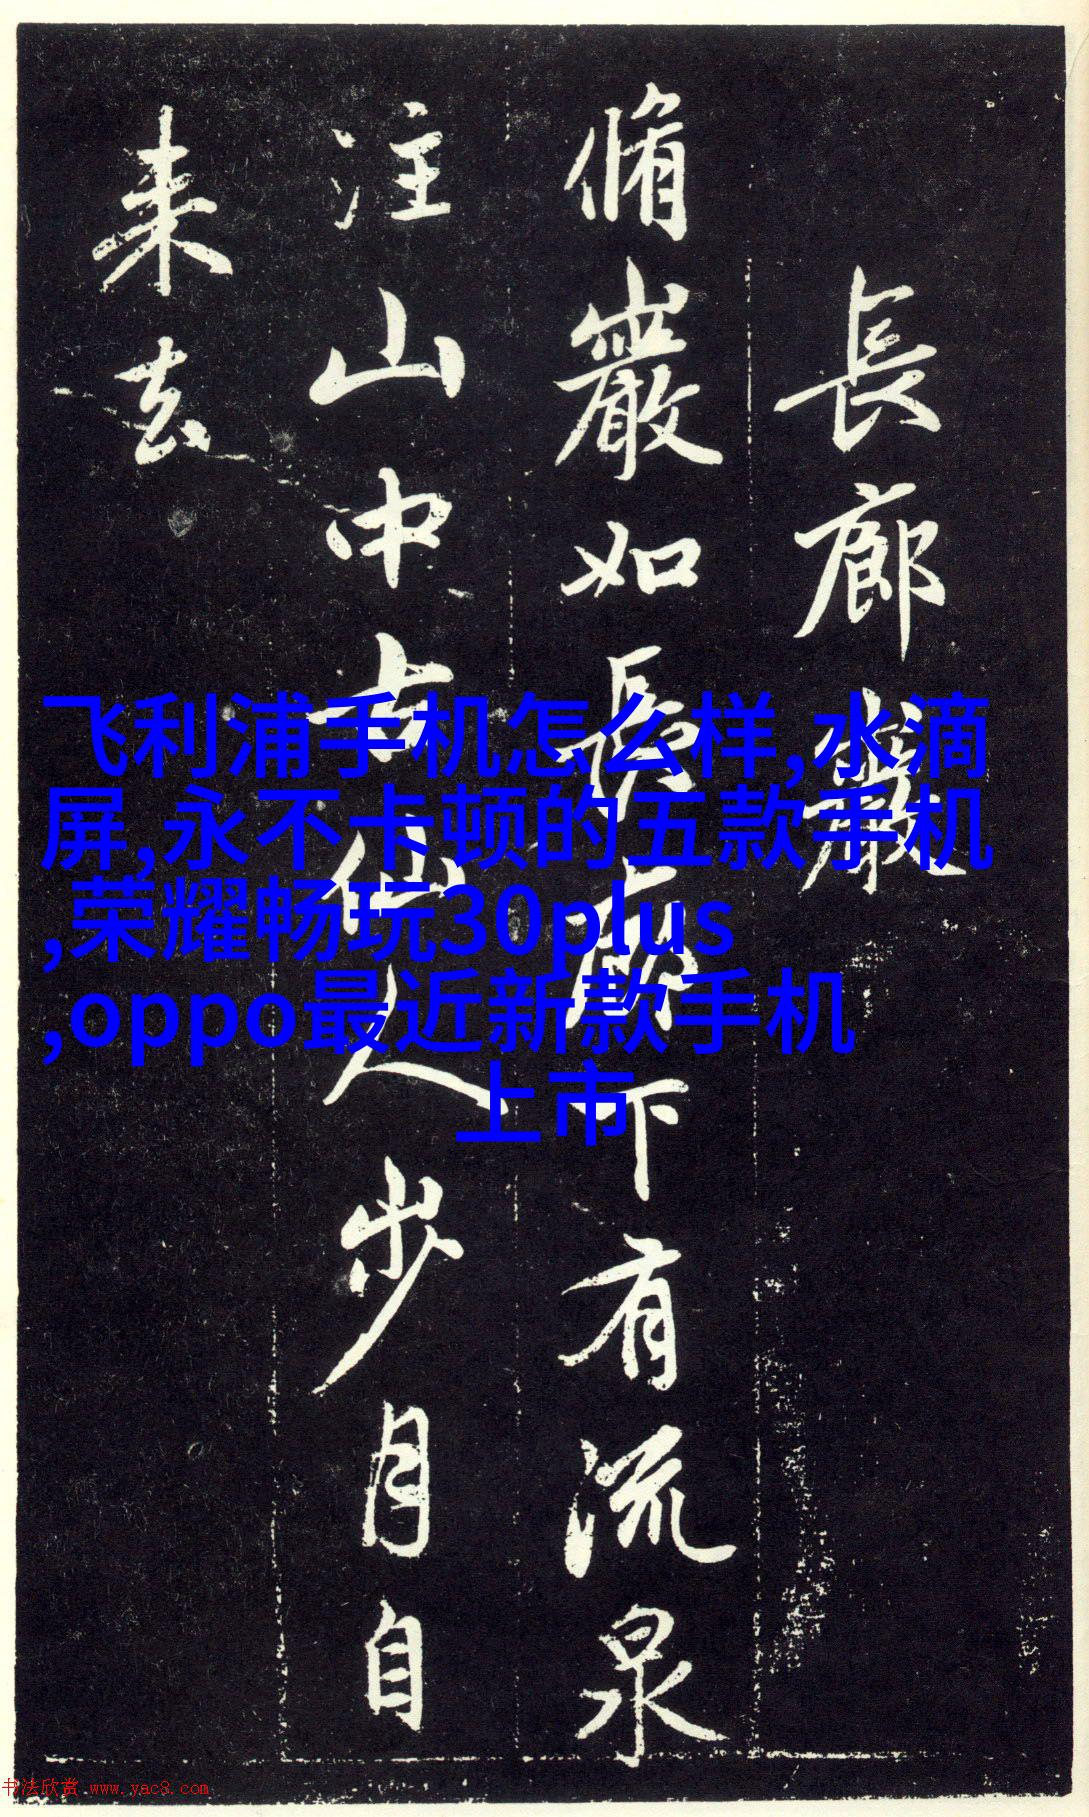 長廊巖
脩巖如長廊下有流泉
注山中古仙人步月自
来去
飞利浦手机怎么样,水滴
屏,永不卡顿的五款手机
,荣耀畅玩30plus
,oppo最近新款手机
上市
书法欣赏 www.yac8.com